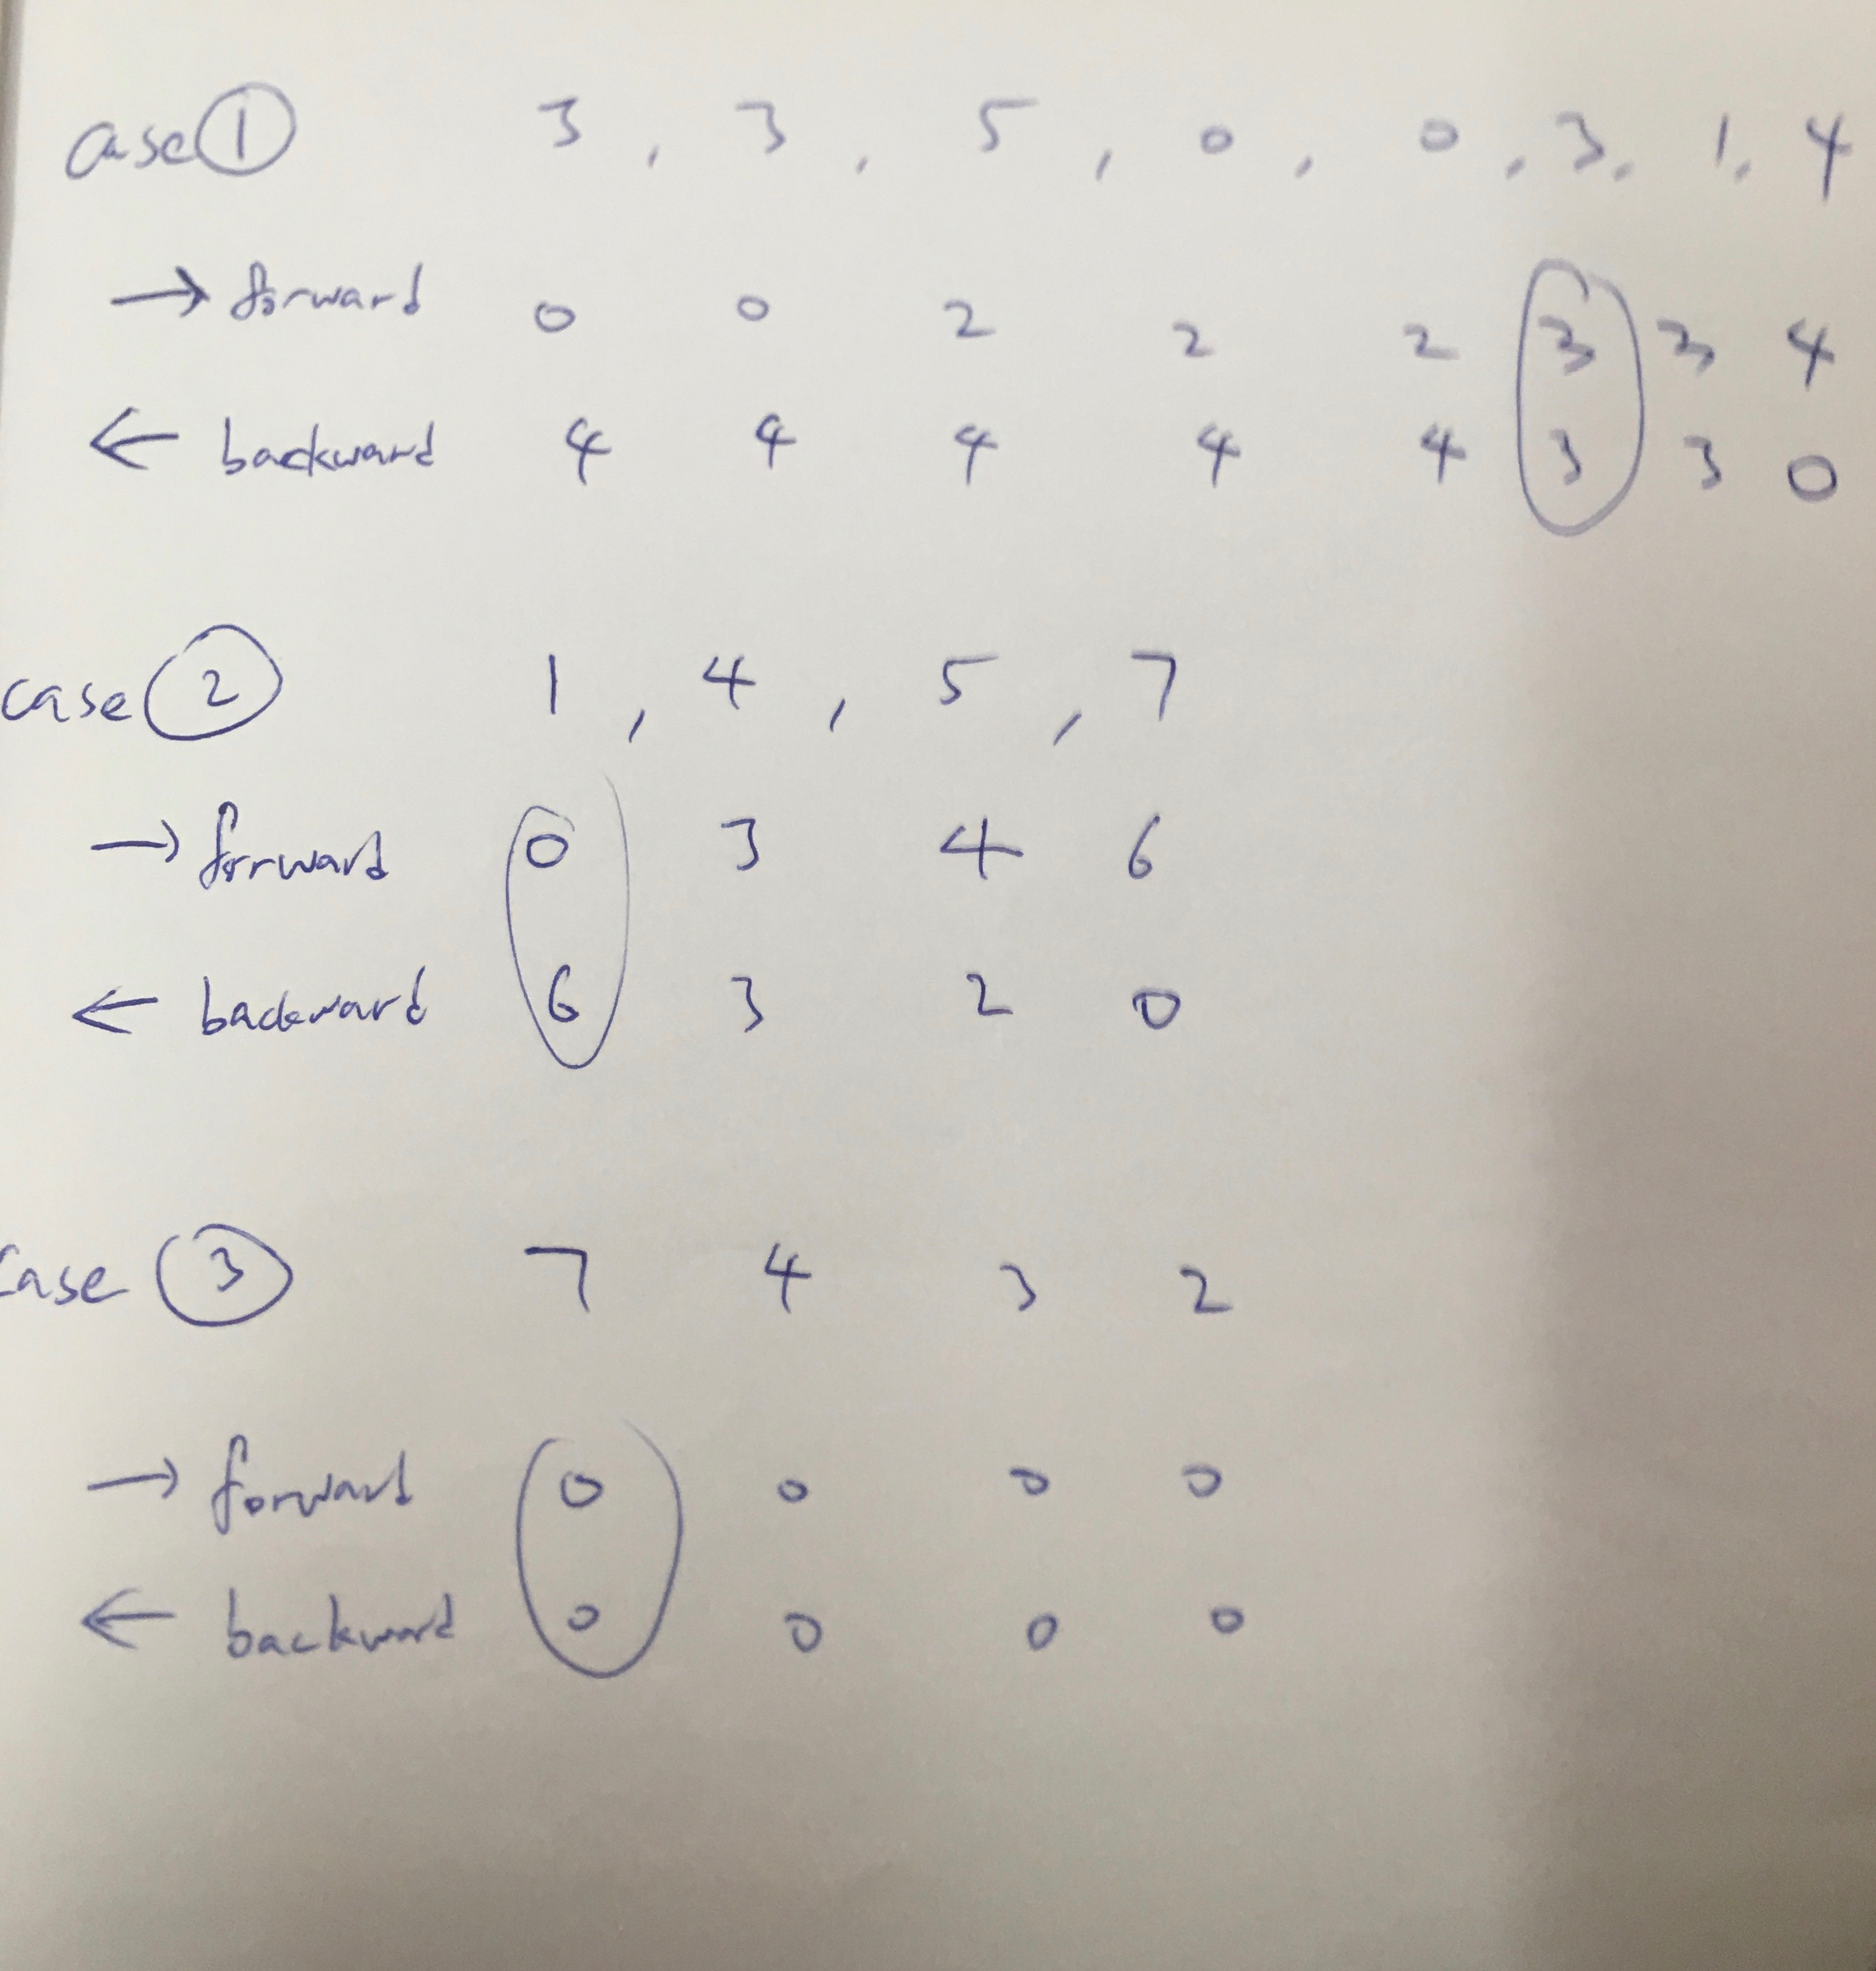 case ① 3 , 3 , 5 , 0 , 0 , 3 , 1 , 4
→ forward 0 0 2 2 2 3 3 4
← backward 4 4 4 4 4 3 3 0
case ② 1 , 4 , 5 , 7
→ forward 0 3 4 6
← backward 6 3 2 0
case ③ 7 4 3 2
→ forward 0 0 0 0
← backward 0 0 0 0